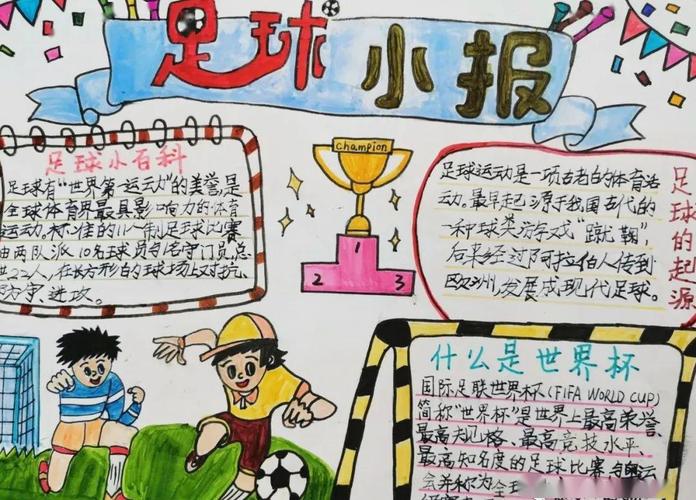 足球小报
足球小百科
足球有"世界第一运动"的美誉,是
全球体育界最具影响力的体育
运动。标准的11人制足球比赛
由两队派10名球员与名守门员,总
共22人,在长方形的球场上对抗、
防守、进攻。
champion
1
2 3
足球的起源
足球运动是一项古老的体育活
动。最早起源于我国古代的
一种球类游戏"蹴鞠"
后来经过阿拉伯人传到
欧洲,发展成现代足球。
什么是世界杯
国际足联世界杯(FIFA WORLD CUP)
简称"世界杯"是世界上最高荣誉、
最高规格、最高竞技水平、
最高知名度的足球比赛与奥运
会并称为全